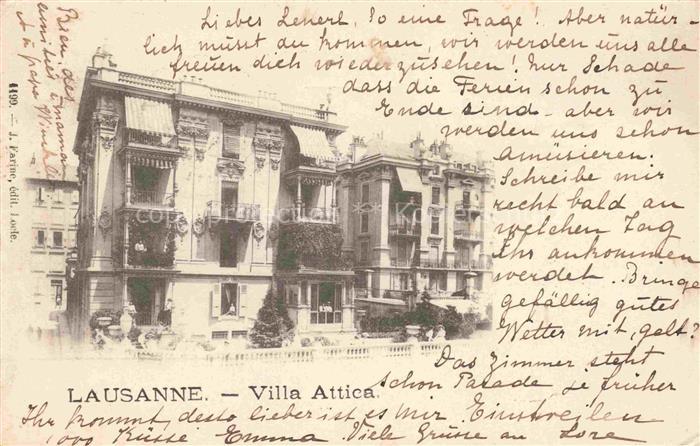 Liebes Lenerl, So eine Frage! Aber natür-
lich musst du kommen, wir werden uns alle
freuen dich wiederzusehen! Nur Schade
dass die Ferien schon zu
Ende sind - aber wir
werden uns schon
amüsieren.
Schreibe mir
recht bald an
welchen Tag
Ihr ankommen
werdet. Bringe
gefällig gutes
Wetter mit, gelt?
Das Zimmer steht
schon Parade je früher
Ihr kommt, desto lieber ist es mir Einstweilen
1000 Küsse Emma Viele Grüsse an Lore
Bien des
amitiés à maman
et à papa
6499. — J. Farine, édit. Locle.
LAUSANNE. — Villa Attica.